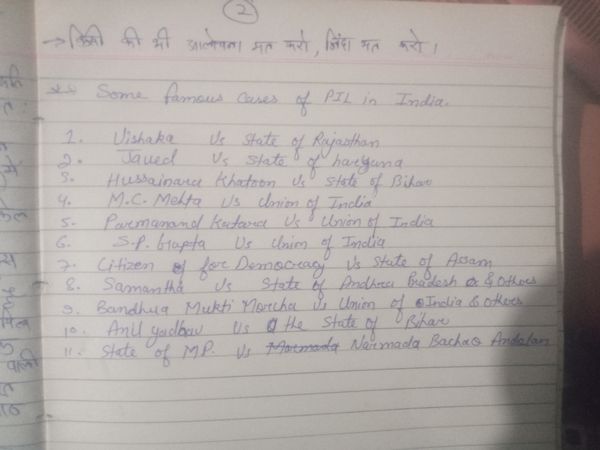 2
→ किसी की भी आलोचना मत करो, निंदा मत करो।
Some famous Cases of PIL in India.
1. Vishaka Vs State of Rajasthan
2. Javed Vs State of haryana
3. Hussainara Khatoon Vs State of Bihar
4. M.C. Mehta Vs Union of India
5. Parmanand Katara Vs Union of India
6. S.P. Gupta Vs Union of India
7. Citizen of for Democracy Vs State of Assam
8. Samantha Vs State of Andhra Pradesh & Others
9. Bandhua Mukti Morcha Vs Union of India & others
10. Anil yadav Vs the State of Bihar
11. State of M.P. Vs Narmada Bachao Andolan